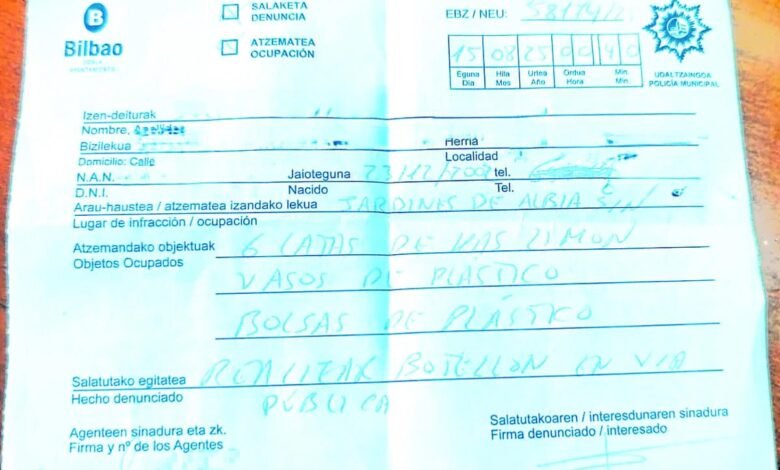 Bilbao
UDALA
AYUNTAMIENTO
SALAKETA
DENUNCIA
ATZEMATEA
OCUPACIÓN
EBZ / NEU:
15 08 25 00 40
Eguna Hila Urtea Ordua Min.
Día Mes Año Hora Min.
UDALTZAINGOA
POLICÍA MUNICIPAL
Izen-deiturak
Nombre, Apellidos
Bizilekua Herria
Domicilio: Calle Localidad
N.A.N. Jaioteguna 23/12/200 tel.
D.N.I. Nacido Tel.
Arau-haustea / atzematea izandako lekua JARDINES DE ALBIA S/N
Lugar de infracción / ocupación
Atzemandako objektuak 6 LATAS DE KAS LIMON
Objetos Ocupados
VASOS DE PLÁSTICO
BOLSAS DE PLÁSTICO
Salatutako egitatea REALIZAR BOTELLON EN VIA
Hecho denunciado PÚBLICA
Agenteen sinadura eta zk.
Firma y nº de los Agentes
Salatutakoaren / interesdunaren sinadura
Firma denunciado / interesado